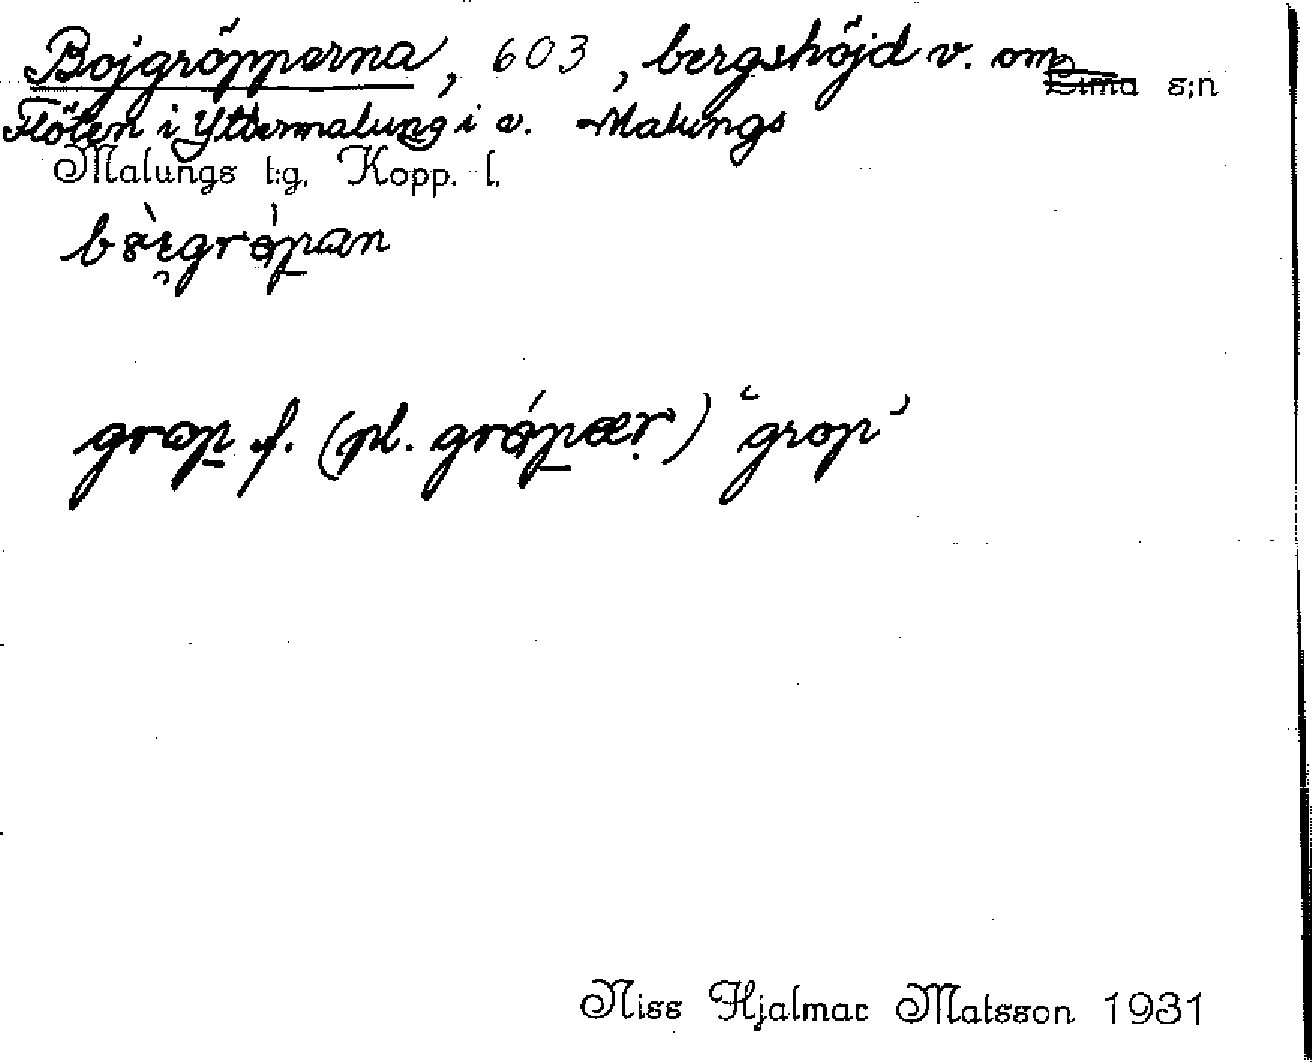 Bojgröpperna, 603, bergshöjd v. om Lima s:n
Flöten i Yttermalung i v. Malungs
Malungs t:g. Kopp. l.
grop f. (pl. grópær) "grop"
Niss Hjalmar Matsson 1931